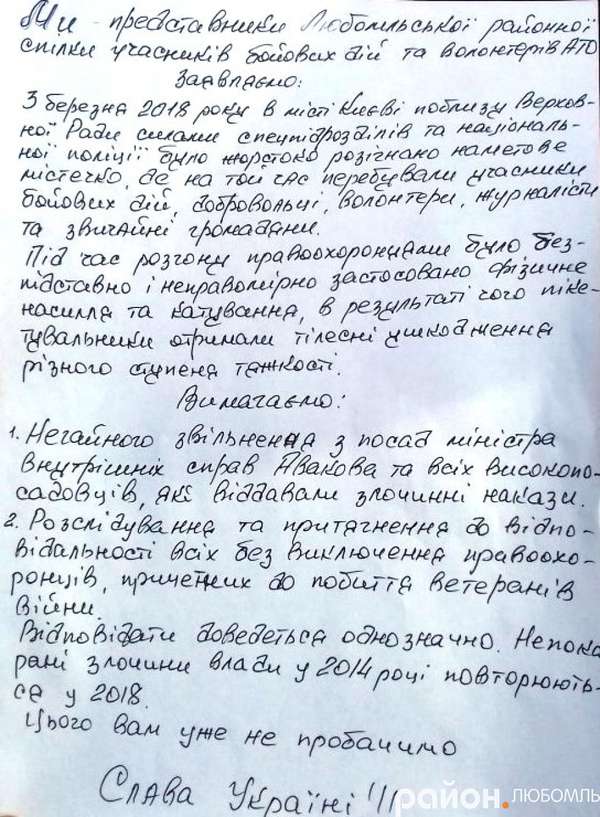 Ми - представники Любомльської районної
спілки учасників бойових дій та волонтерів АТО
Заявляємо:
3 березня 2018 року в місті Києві поблизу Верхов-
ної Ради силами спецпідрозділів та національ-
ної поліції було жорстоко розігнано наметове
містечко, де на той час перебували учасники
бойових дій, добровольці, волонтери, журналісти
та звичайні громадяни.
Під час розгону правоохоронцями було без-
підставно і неправомірно застосовано фізичне
насилля та катування, в результаті чого піке-
тувальники отримали тілесні ушкодження
різного ступеня тяжкості.
Вимагаємо:
1. Негайного звільнення з посад міністра
внутрішніх справ Авакова та всіх високопо-
садовців, які віддавали злочинні накази.
2. Розслідування та притягнення до відпо-
відальності всіх без виключення правоохо-
ронців, причетних до побиття ветеранів
війни.
Відповідати доведеться однозначно. Непока
рані злочини влади у 2014 році повторюють-
ся у 2018.
Цього вам уже не пробачимо
Слава Україні!!!
район.ЛЮБОМЛЬ